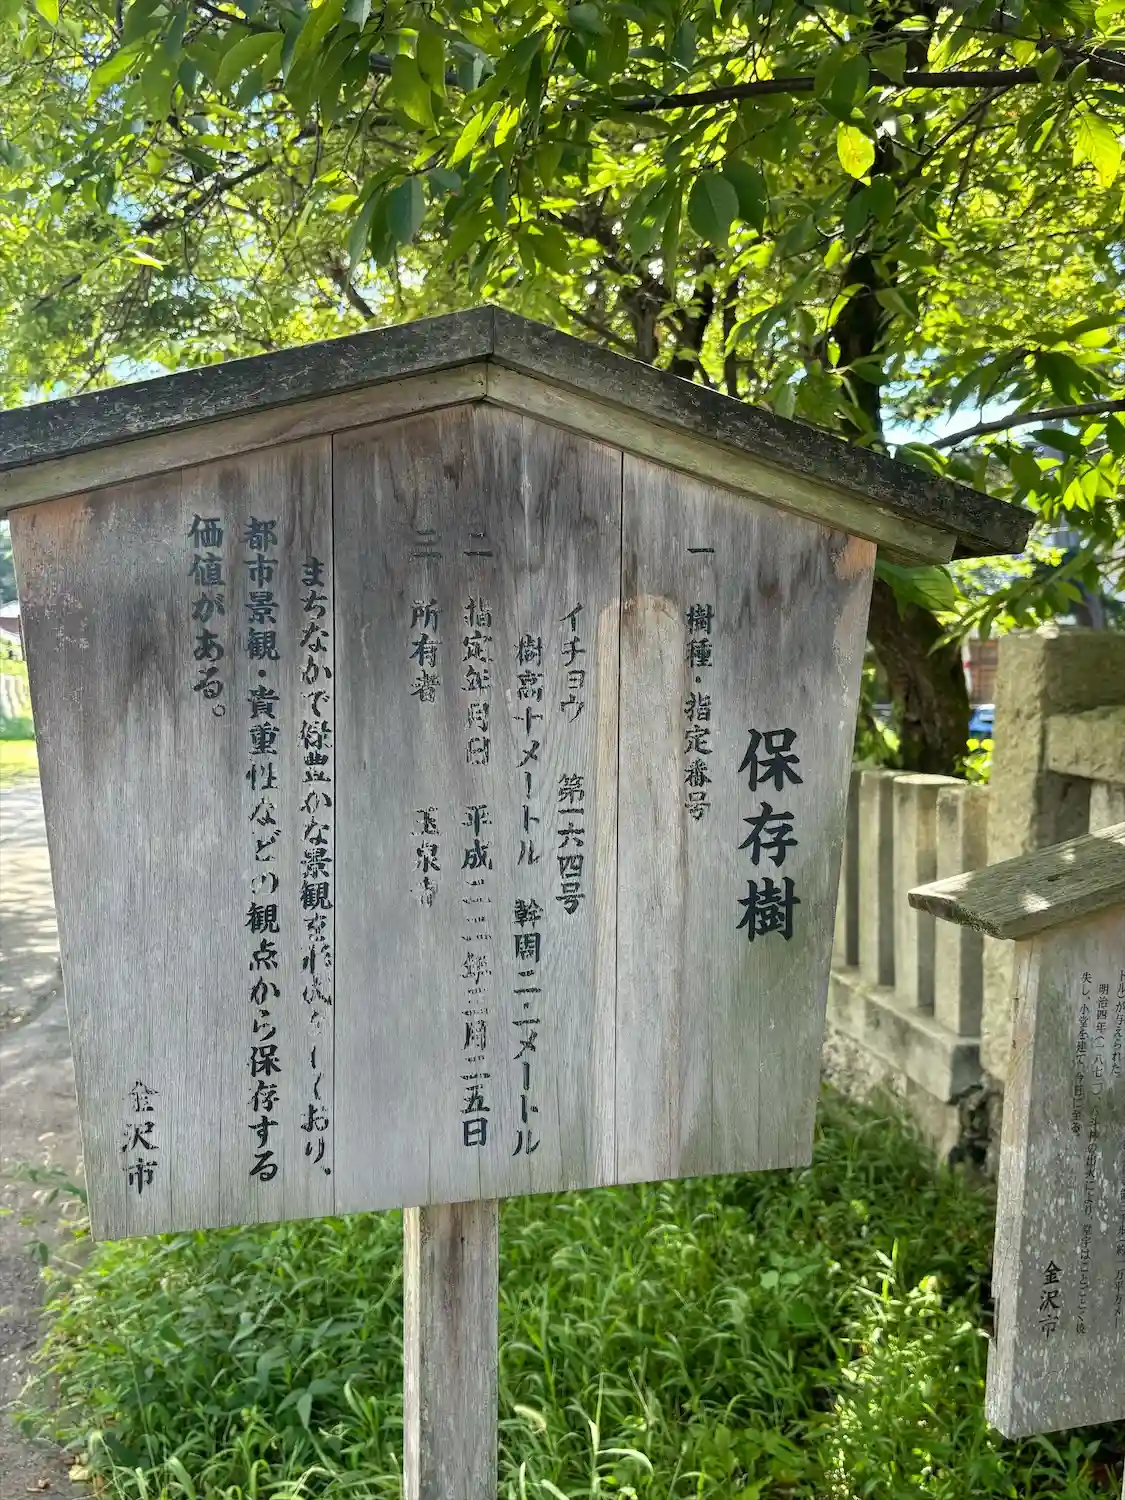 保存樹
一 樹種・指定番号
イチョウ 第一六四号
樹高十メートル 幹周二・二メートル
二 指定年月日 平成二二年三月二五日
三 所有者 玉泉寺
まちなかで緑豊かな景観を形成しており、
都市景観・貴重性などの観点から保存する
価値がある。
金沢市
トル)が与えられた。
明治四年(一八七一)、の出火により 堂宇はことごとく焼
失し、小堂を建て、今日に至る。
金沢市